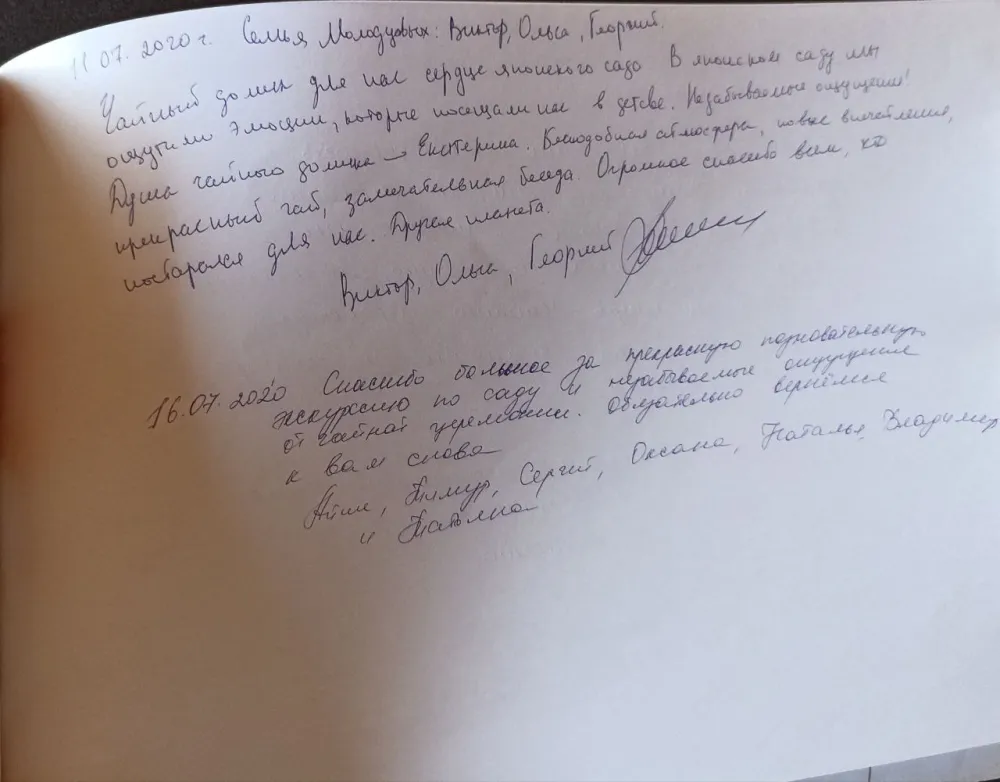 11.07.2020 г. Семья Молодуовых: Виктор, Ольга, Георгий.
Чайный домик для нас сердце японского сада В японском саду мы
ощутили эмоции, которые посещали нас в детсве. Незабываемые ощущения!
Душа чайного домика – Екатерина. Бесподобная атмосфера, новые впечатления,
прекрасный чай, замечательная беседа. Огромное спасибо всем, кто
постарался для нас. Другая планета.
Виктор, Ольга, Георгий
16.07.2020 Спасибо большое за прекрасную позновательную
экскурсию по саду и незабываемые ощущения
от чайной церемонии. Обязательно вернёмся
к вам снова
Тимур, Сергей, Оксана, Наталья, Владимир
и Татьяна